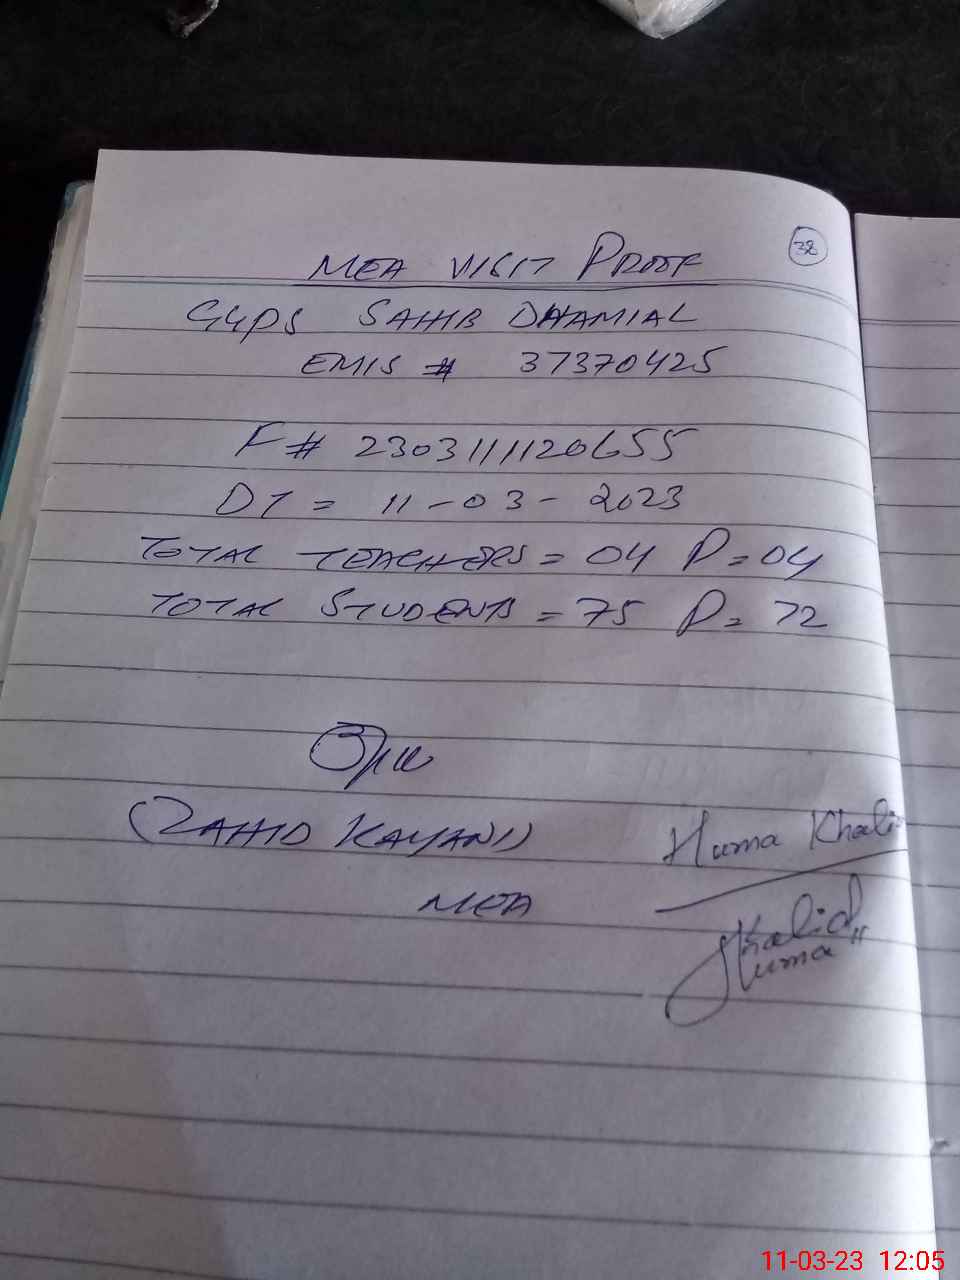 38
MEA VISIT PROOF
GGPS SAHIB DHAMIAL
EMIS # 37370425
F# 2303111120655
DT = 11-03-2023
TOTAL TEACHERS = 04 P = 04
TOTAL STUDENTS = 75 P = 72
(ZAHID KAYANI)
MEA
Huma Khalid
Khalid
Huma
11-03-23 12:05